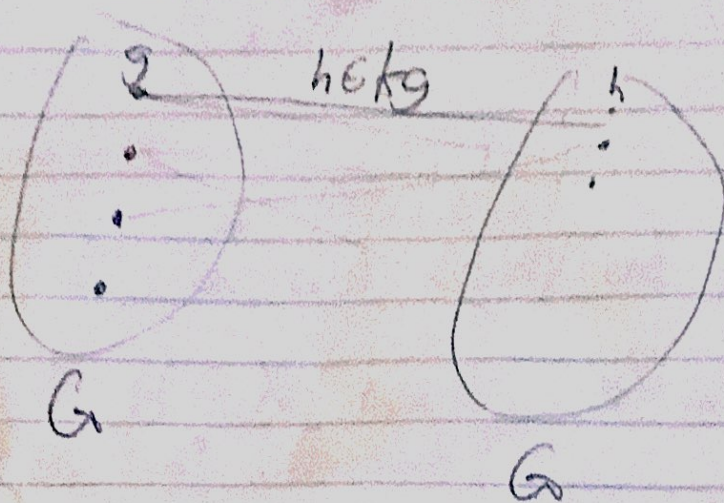 g h∈Kg h
G
G